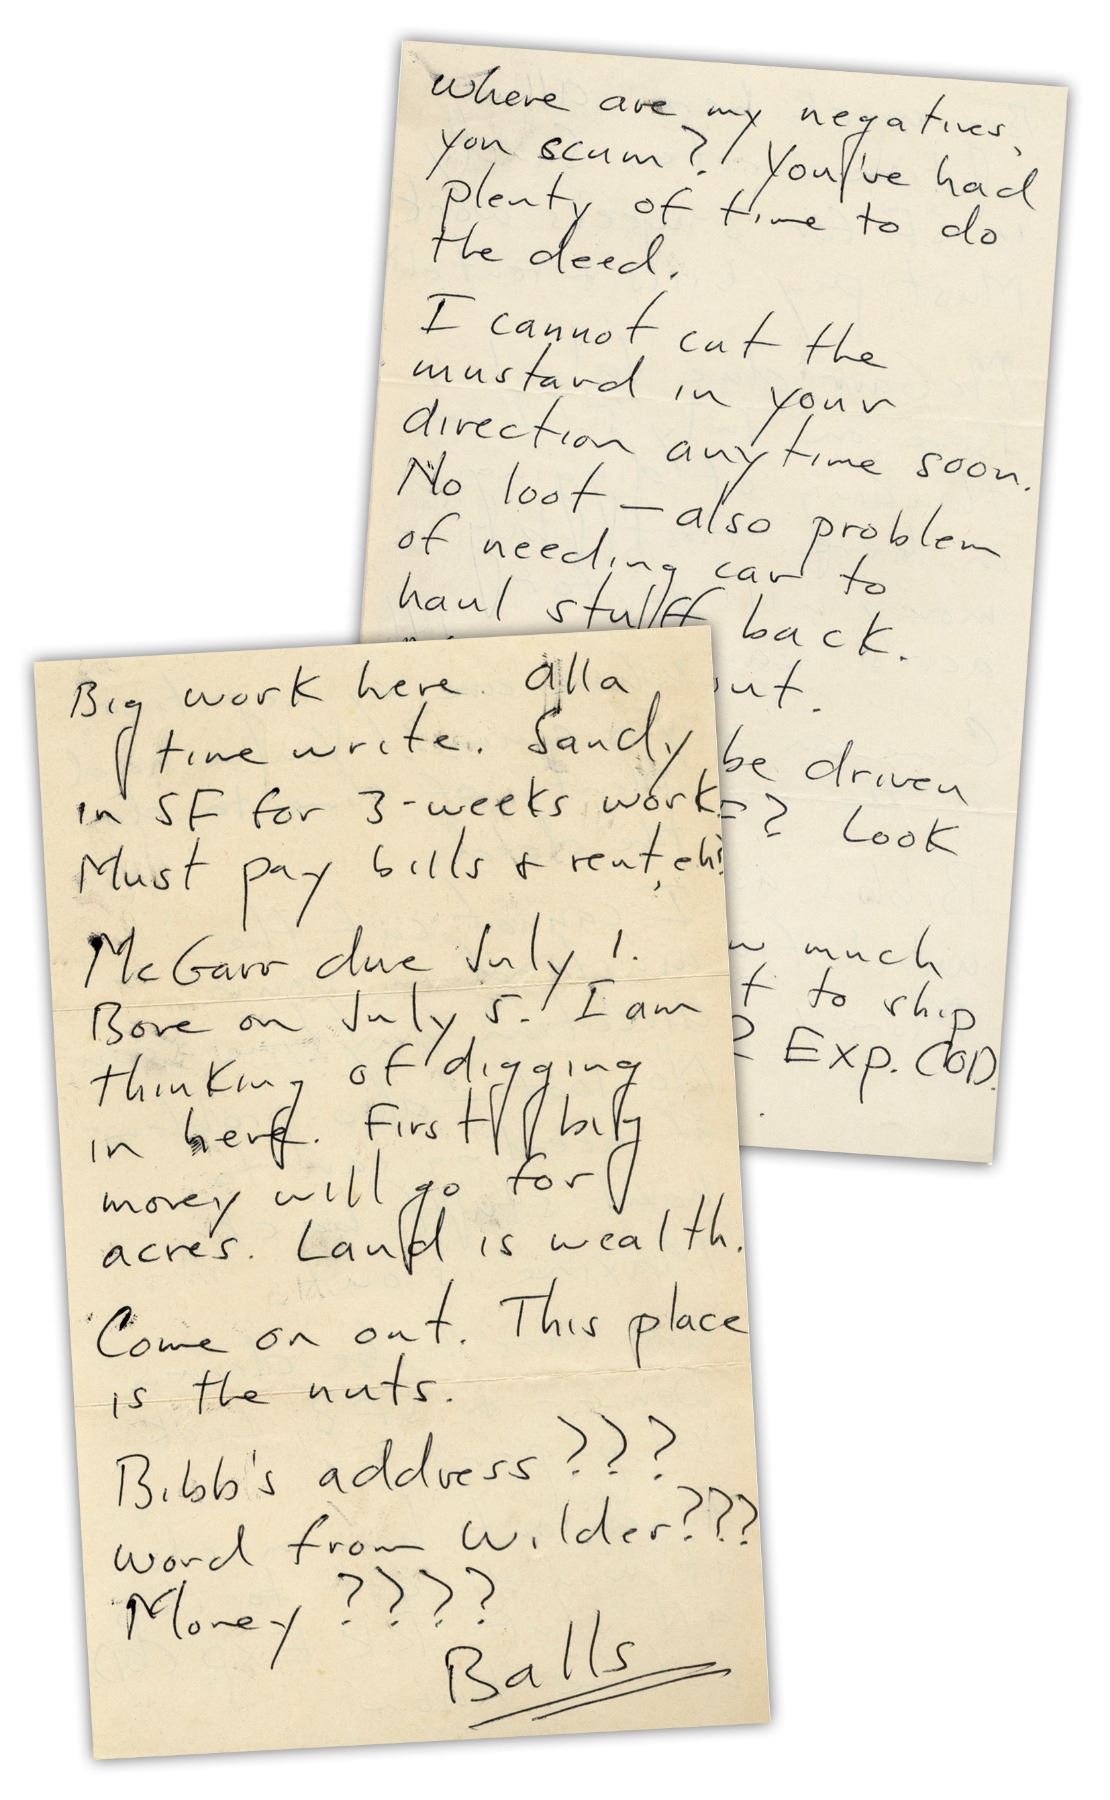 Where are my negatives,
you scum? You've had
plenty of time to do
the deed.
I cannot cut the
mustard in your
direction anytime soon.
No loot — also problem
of needing car to
haul stuff back.
out.
be driven
? Look
much
to ship
Exp. COD.
Big work here. alla
time write. Sandy
in SF for 3-weeks work.
Must pay bills & rent, eh?
McGarr due July 1.
Bone on July 5. I am
thinking of digging
in here. First big
money will go for
acres. Land is wealth.
Come on out. This place
is the nuts.
Bibb's address ???
word from Wilder???
Money ????
Balls